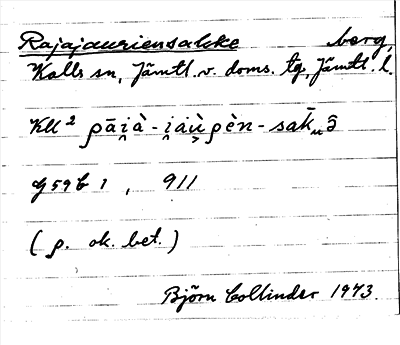 Rajajauriensakke berg,
Kalls sn, Jämtl. v. doms. tg, Jämtl. l.
KU 2 pāi̯à - i̯áu̯ pèn - sak̄
G59b1, 911
(p. ok. bet.)
Björn Collinder 1973.